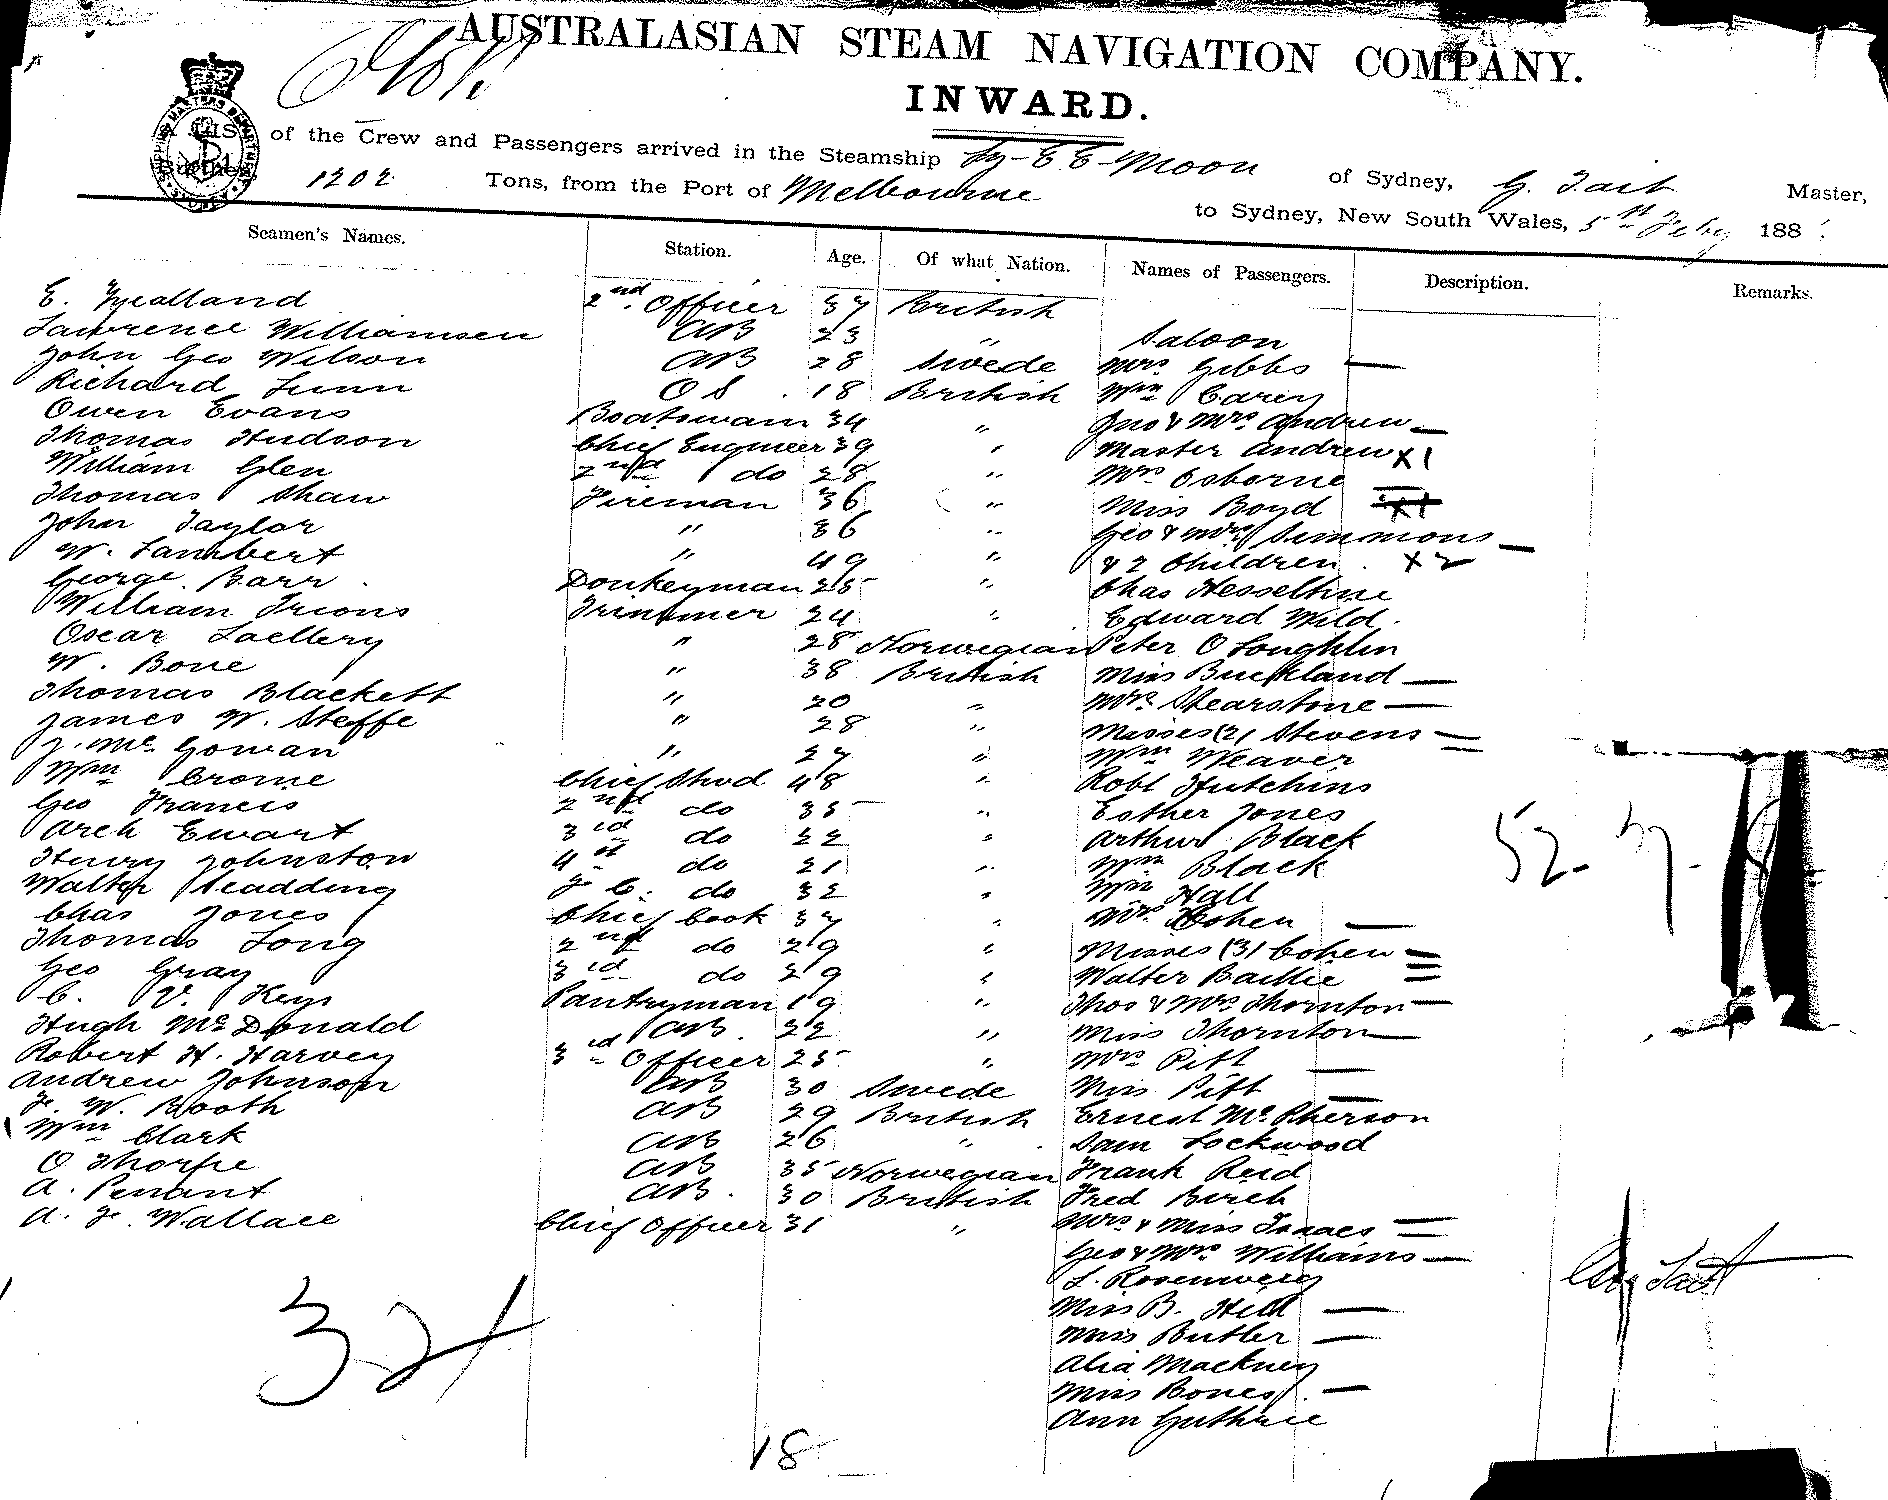 AUSTRALASIAN STEAM NAVIGATION COMPANY.
INWARD.
A LIST of the Crew and Passengers arrived in the Steamship Ly-E E-Moon of Sydney, G. Tait Master,
Burthen 1202 Tons, from the Port of Melbourne to Sydney, New South Wales, 5th Feby 188
Seamen's Names. Station. Age. Of what Nation. Names of Passengers. Description. Remarks.
E. Fyealland 2nd Officer 37 British
Lawrence Williamsen AB 23 " Saloon
John Geo Wilson AB 28 Swede Mrs Gibbs —
Richard Lunn OS 18 British Wm Carey
Owen Evans Boatswain 34 " Jno & Mrs Andrew —
Thomas Hudson Chief Engineer 39 " Master Andrew X1
William Glen 2nd do 28 " Mrs Osborne —
Thomas Shaw Fireman 36 " Miss Boyd
John Taylor " 36 " Geo & Mrs Simmons —
W. Lambert " 49 " & 2 Children X2
George Barr Donkeyman 25 " Chas Hesseltine
William Irions Trimmer 24 " Edward Wild
Oscar Laellery " 28 Norwegian Peter O Loughlin
W. Bone " 38 British Miss Buckland —
Thomas Blackett " 20 " Mrs Shearstone —
James W. Steffe " 28 " Misses (2) Stevens =
J. Mc Gowan " 27 " Wm Weaver
Wm Crome Chief Stwd 48 " Robt Hutchins
Geo Francis 2nd do 35 " Esther Jones
Arch Ewart 3rd do 22 " Arthur Black
Henry Johnston 4th do 21 " Wm Black
Walter Scadding F. C. do 32 " Wm Hall
Chas Jones Chief Cook 37 " Mrs Cohen —
Thomas Long 2nd do 29 " Misses (3) Cohen
Geo Gray 3rd do 29 " Walter Baillie
C. V. Keys Pantryman 19 " Thos & Mrs Thornton —
Hugh McDonald AB 22 " Miss Thornton —
Robert H. Harvey 3rd Officer 25 " Mrs Pitt —
Andrew Johnson AB 30 Swede Miss Pitt —
F. W. Booth AB 29 British Ernest McPherson
Wm Clark AB 26 " Sam Lockwood
O Thorpe AB 35 Norwegian Frank Reid
A. Penant AB 30 British Fred Birch
A. F. Wallace Chief Officer 31 " Mrs & Miss Isaacs =
Geo & Mrs Williams —
L. Rosenwerg
Miss B. Hill —
Miss Butler —
Alia Mackney
Miss Bones —
Ann Guthrie
52. 37.
Geo Tait
34
18